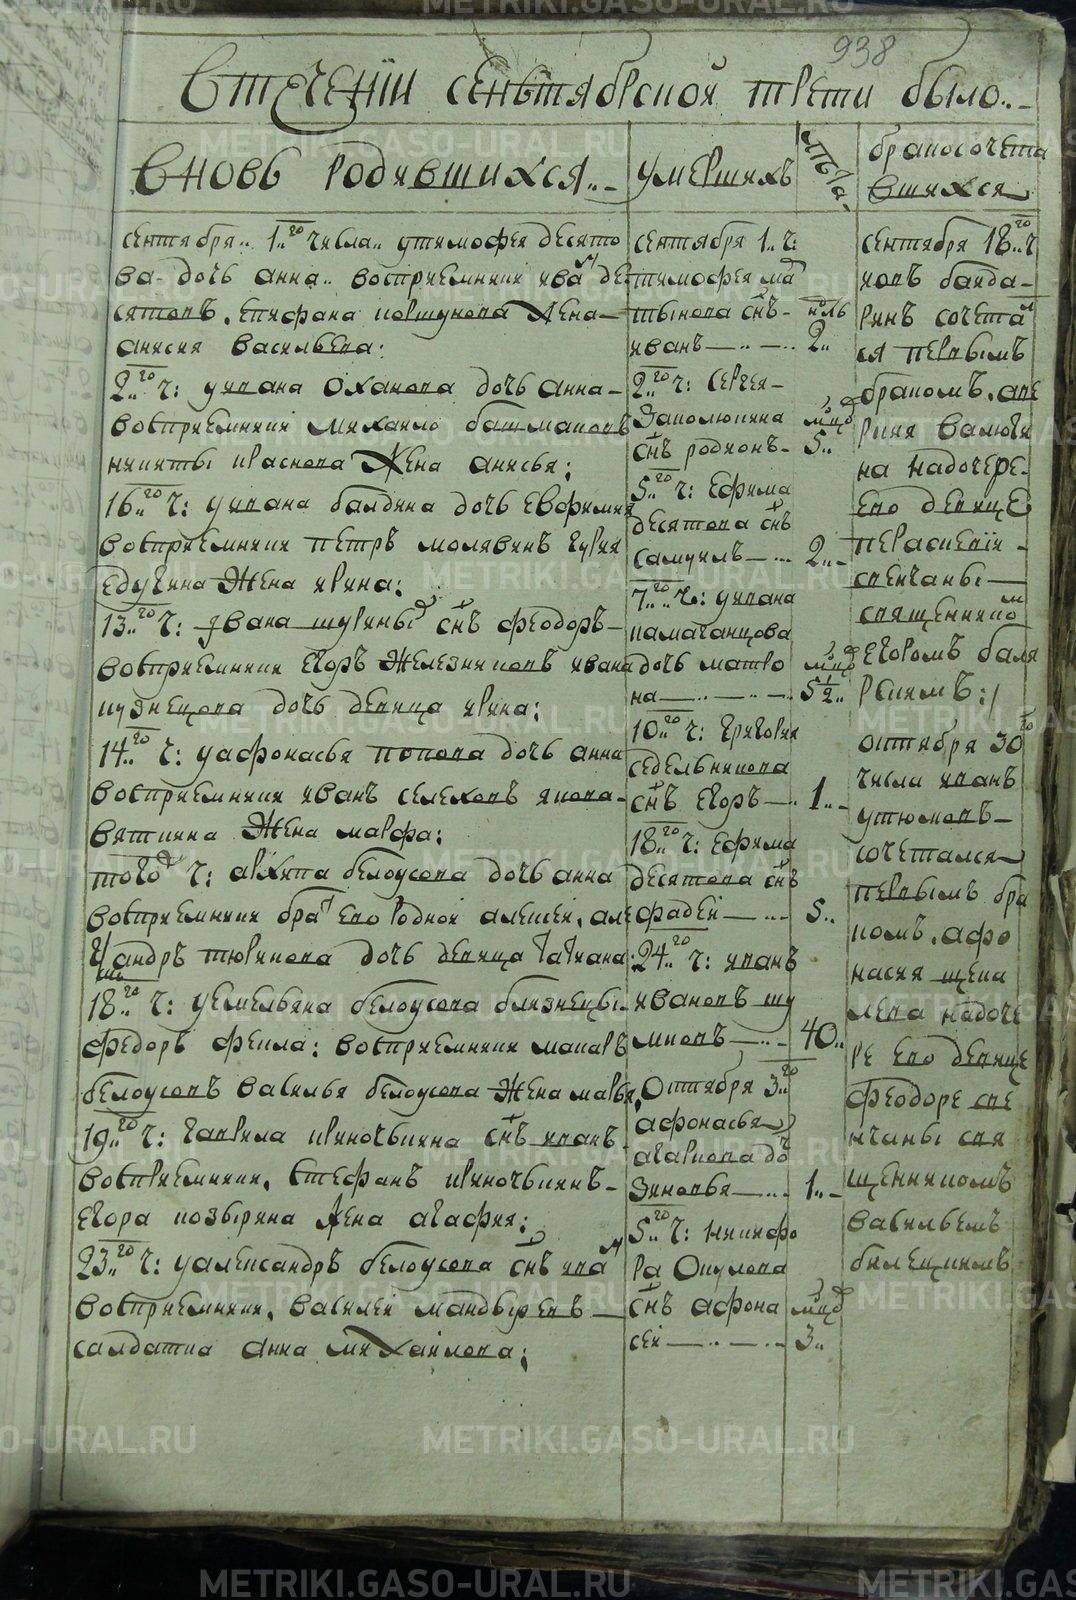 938
Втечении сентябрской трети было..
Вновь родившихся..
сентября.. 1..го числа.. утимофея десято
ва дочь анна.. восприемники ива де
сятовъ, епифана коршунова жена
анисия васильева:
2..го ч: уивана оханова дочь анна
восприемники михаило башмаковъ
никиты краснова жена анисья;
16..го ч: уивана балдина дочь евфимия
восприемники петръ молявинъ
жена ирина:
13..го ч: ивана шурины снъ феодоръ
восприемники егоръ железниковъ ивана
кузнецова дочь девица ирина;
14..го ч: уафонасья попова дочь анна
восприемники иванъ селеховъ якова
вяткина жена марфа;
того ч: архипа белоусова дочь анна
восприемники брат ево родной алексей, але
ксандръ тюрикова дочь девица татиана
18..го ч: уемельяна белоусова близнецы
федоръ фекла: восприемники макаръ
белоусовъ василья белоусова жена марья
19..го ч: гаврила криночкина снъ иванъ
восприемники, стефанъ криночкинъ
егора козырина жена агафия;
23..го ч: уалександръ белоусова снъ ива
восприемники, василей
салдатка анна михайлова;
умершихъ
сентября 1..ч:
тимофея ма
тынова снъ
иванъ
2..го ч: сергея
заколюкина
снъ родионъ
5..го ч: ефима
десятова снъ
самуилъ
7..го ч: уивана
камаганцова
дочь матро
на
10..го ч: григория
седельникова
снъ егоръ
18..го ч: ефима
десятова снъ
фадей
24..го ч: иванъ
ивановъ шу
миловъ
Октября 3..го
афонасья
дочь
зиновья
5..го ч: никифо
ра окулова
снъ афона
сей
лѣта
2..
5..
2..
5 1/2..
1..
5..
40..
1..
3..
бракосочета
вшихся
сентября 18..го ч
яковъ байда
ринъ сочетал
ся первымъ
бракомъ, аве
на надочере
ево девице
парасковии
венчаны
священником
егоромъ
октября 30го
числа иванъ
утюмовъ
сочетался
первымъ бра
комъ, афо
насия щепи
лева надоче
ре ево девице
феодоре ве
нчаны свя
щенникомъ
васильемъ